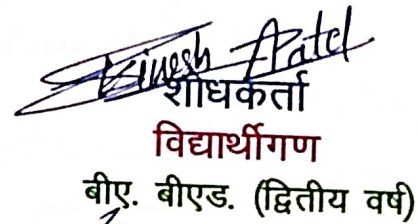 Dinesh Patel
शोधकर्ता
विद्यार्थीगण
बीए. बीएड. (द्वितीय वर्ष)